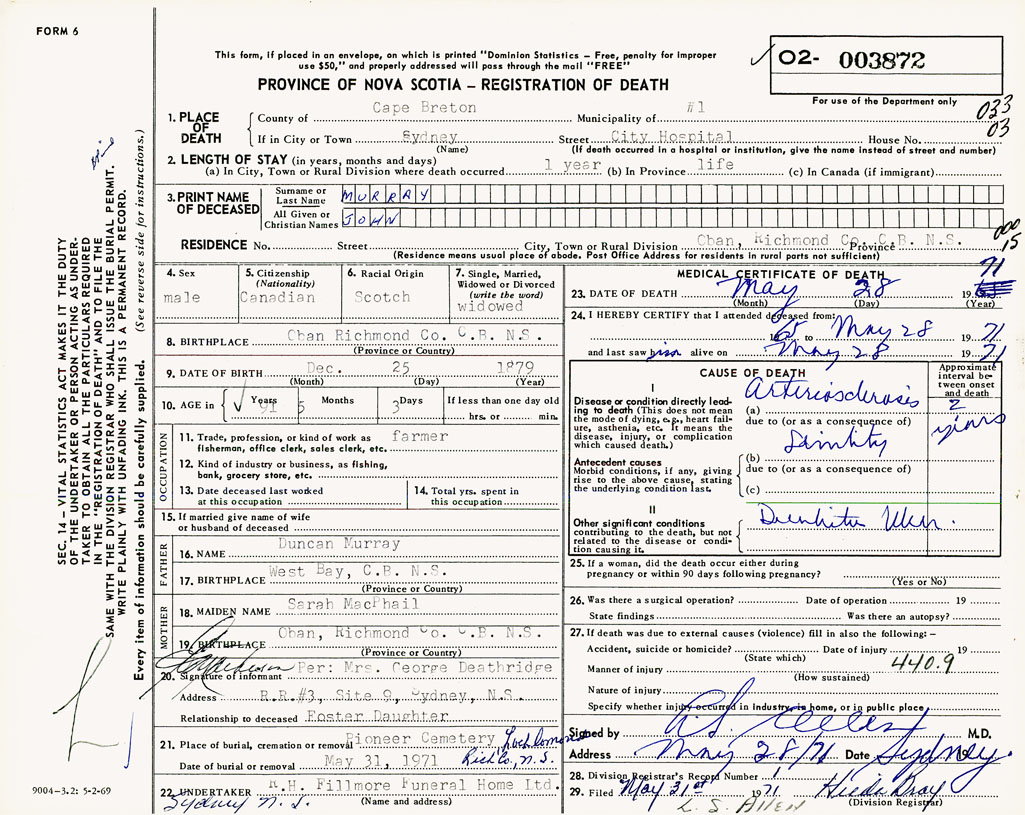 FORM 6
This form, if placed in an envelope, on which is printed "Dominion Statistics – Free, penalty for improper
use $50," and properly addressed will pass through the mail "FREE"
02- 003872
For use of the Department only
PROVINCE OF NOVA SCOTIA – REGISTRATION OF DEATH
033
03
1. PLACE OF DEATH
County of Cape Breton Municipality of #1
If in City or Town Sydney Street City Hospital House No.
(Name) (If death occurred in a hospital or institution, give the name instead of street and number)
2. LENGTH OF STAY (in years, months and days)
(a) In City, Town or Rural Division where death occurred 1 year (b) In Province life (c) In Canada (if immigrant)
3. PRINT NAME OF DECEASED
Surname or Last Name MURRAY
All Given or Christian Names JOHN
000
15
RESIDENCE No. Street City, Town or Rural Division Oban, Richmond Co. C.B. N.S. Province
(Residence means usual place of abode. Post Office Address for residents in rural parts not sufficient)
4. Sex
male
5. Citizenship
(Nationality)
Canadian
6. Racial Origin
Scotch
7. Single, Married,
Widowed or Divorced
(write the word)
widowed
8. BIRTHPLACE Oban Richmond Co. C.B. N.S.
(Province or Country)
9. DATE OF BIRTH Dec. 25 1879
(Month) (Day) (Year)
10. AGE in Years 91 Months 5 Days 3 If less than one day old
hrs. or min.
OCCUPATION
11. Trade, profession, or kind of work as farmer
fisherman, office clerk, sales clerk, etc.
12. Kind of industry or business, as fishing,
bank, grocery store, etc.
13. Date deceased last worked
at this occupation
14. Total yrs. spent in
this occupation
15. If married give name of wife
or husband of deceased
FATHER
16. NAME Duncan Murray
17. BIRTHPLACE West Bay, C.B. N.S.
(Province or Country)
MOTHER
18. MAIDEN NAME Sarah MacPhail
19. BIRTHPLACE Oban, Richmond Co. C.B. N.S.
(Province or Country)
20. Signature of informant Per: Mrs. George Deathridge
Address R.R.#3, Site 9, Sydney, N.S.
Relationship to deceased Foster Daughter
21. Place of burial, cremation or removal Pioneer Cemetery Loch Lomond
Rich Co, N.S.
Date of burial or removal May 31, 1971
22. UNDERTAKER R.H. Fillmore Funeral Home Ltd.
Sydney N.S. (Name and address)
MEDICAL CERTIFICATE OF DEATH
23. DATE OF DEATH May 28 19 71
(Month) (Day) (Year)
24. I HEREBY CERTIFY that I attended deceased from:
19 65 to May 28 19 71
and last saw him alive on May 28 19 71
CAUSE OF DEATH
Approximate interval between onset and death
I
Disease or condition directly leading to death (This does not mean the mode of dying, e.g., heart failure, asthenia, etc. It means the disease, injury, or complication which caused death.)
(a) Arteriosclerosis 2 years
due to (or as a consequence of)
Senility
Antecedent causes
Morbid conditions, if any, giving rise to the above cause, stating the underlying condition last.
(b)
due to (or as a consequence of)
(c)
II
Other significant conditions
contributing to the death, but not related to the disease or condition causing it.
25. If a woman, did the death occur either during
pregnancy or within 90 days following pregnancy?
(Yes or No)
26. Was there a surgical operation? Date of operation 19
State findings Was there an autopsy?
27. If death was due to external causes (violence) fill in also the following: –
Accident, suicide or homicide? Date of injury 19
(State which)
440.9
Manner of injury
(How sustained)
Nature of injury
Specify whether injury occurred in industry, in home, or in public place
Signed by M.D.
Address May 28/71 Date Sydney 19
28. Division Registrar's Record Number 1
29. Filed May 31st 1971
(Division Registrar)
L. S. ALLEN
SEC. 14 – VITAL STATISTICS ACT MAKES IT THE DUTY
OF THE UNDERTAKER OR PERSON ACTING AS UNDERTAKER TO OBTAIN ALL THE PARTICULARS REQUIRED
IN THE "REGISTRATION OF DEATH" AND TO FILE THE
SAME WITH THE DIVISION REGISTRAR WHO SHALL ISSUE THE BURIAL PERMIT.
WRITE PLAINLY WITH UNFADING INK. THIS IS A PERMANENT RECORD.
Every item of information should be carefully supplied. (See reverse side for instructions.)
9004-3.2: 5-2-69